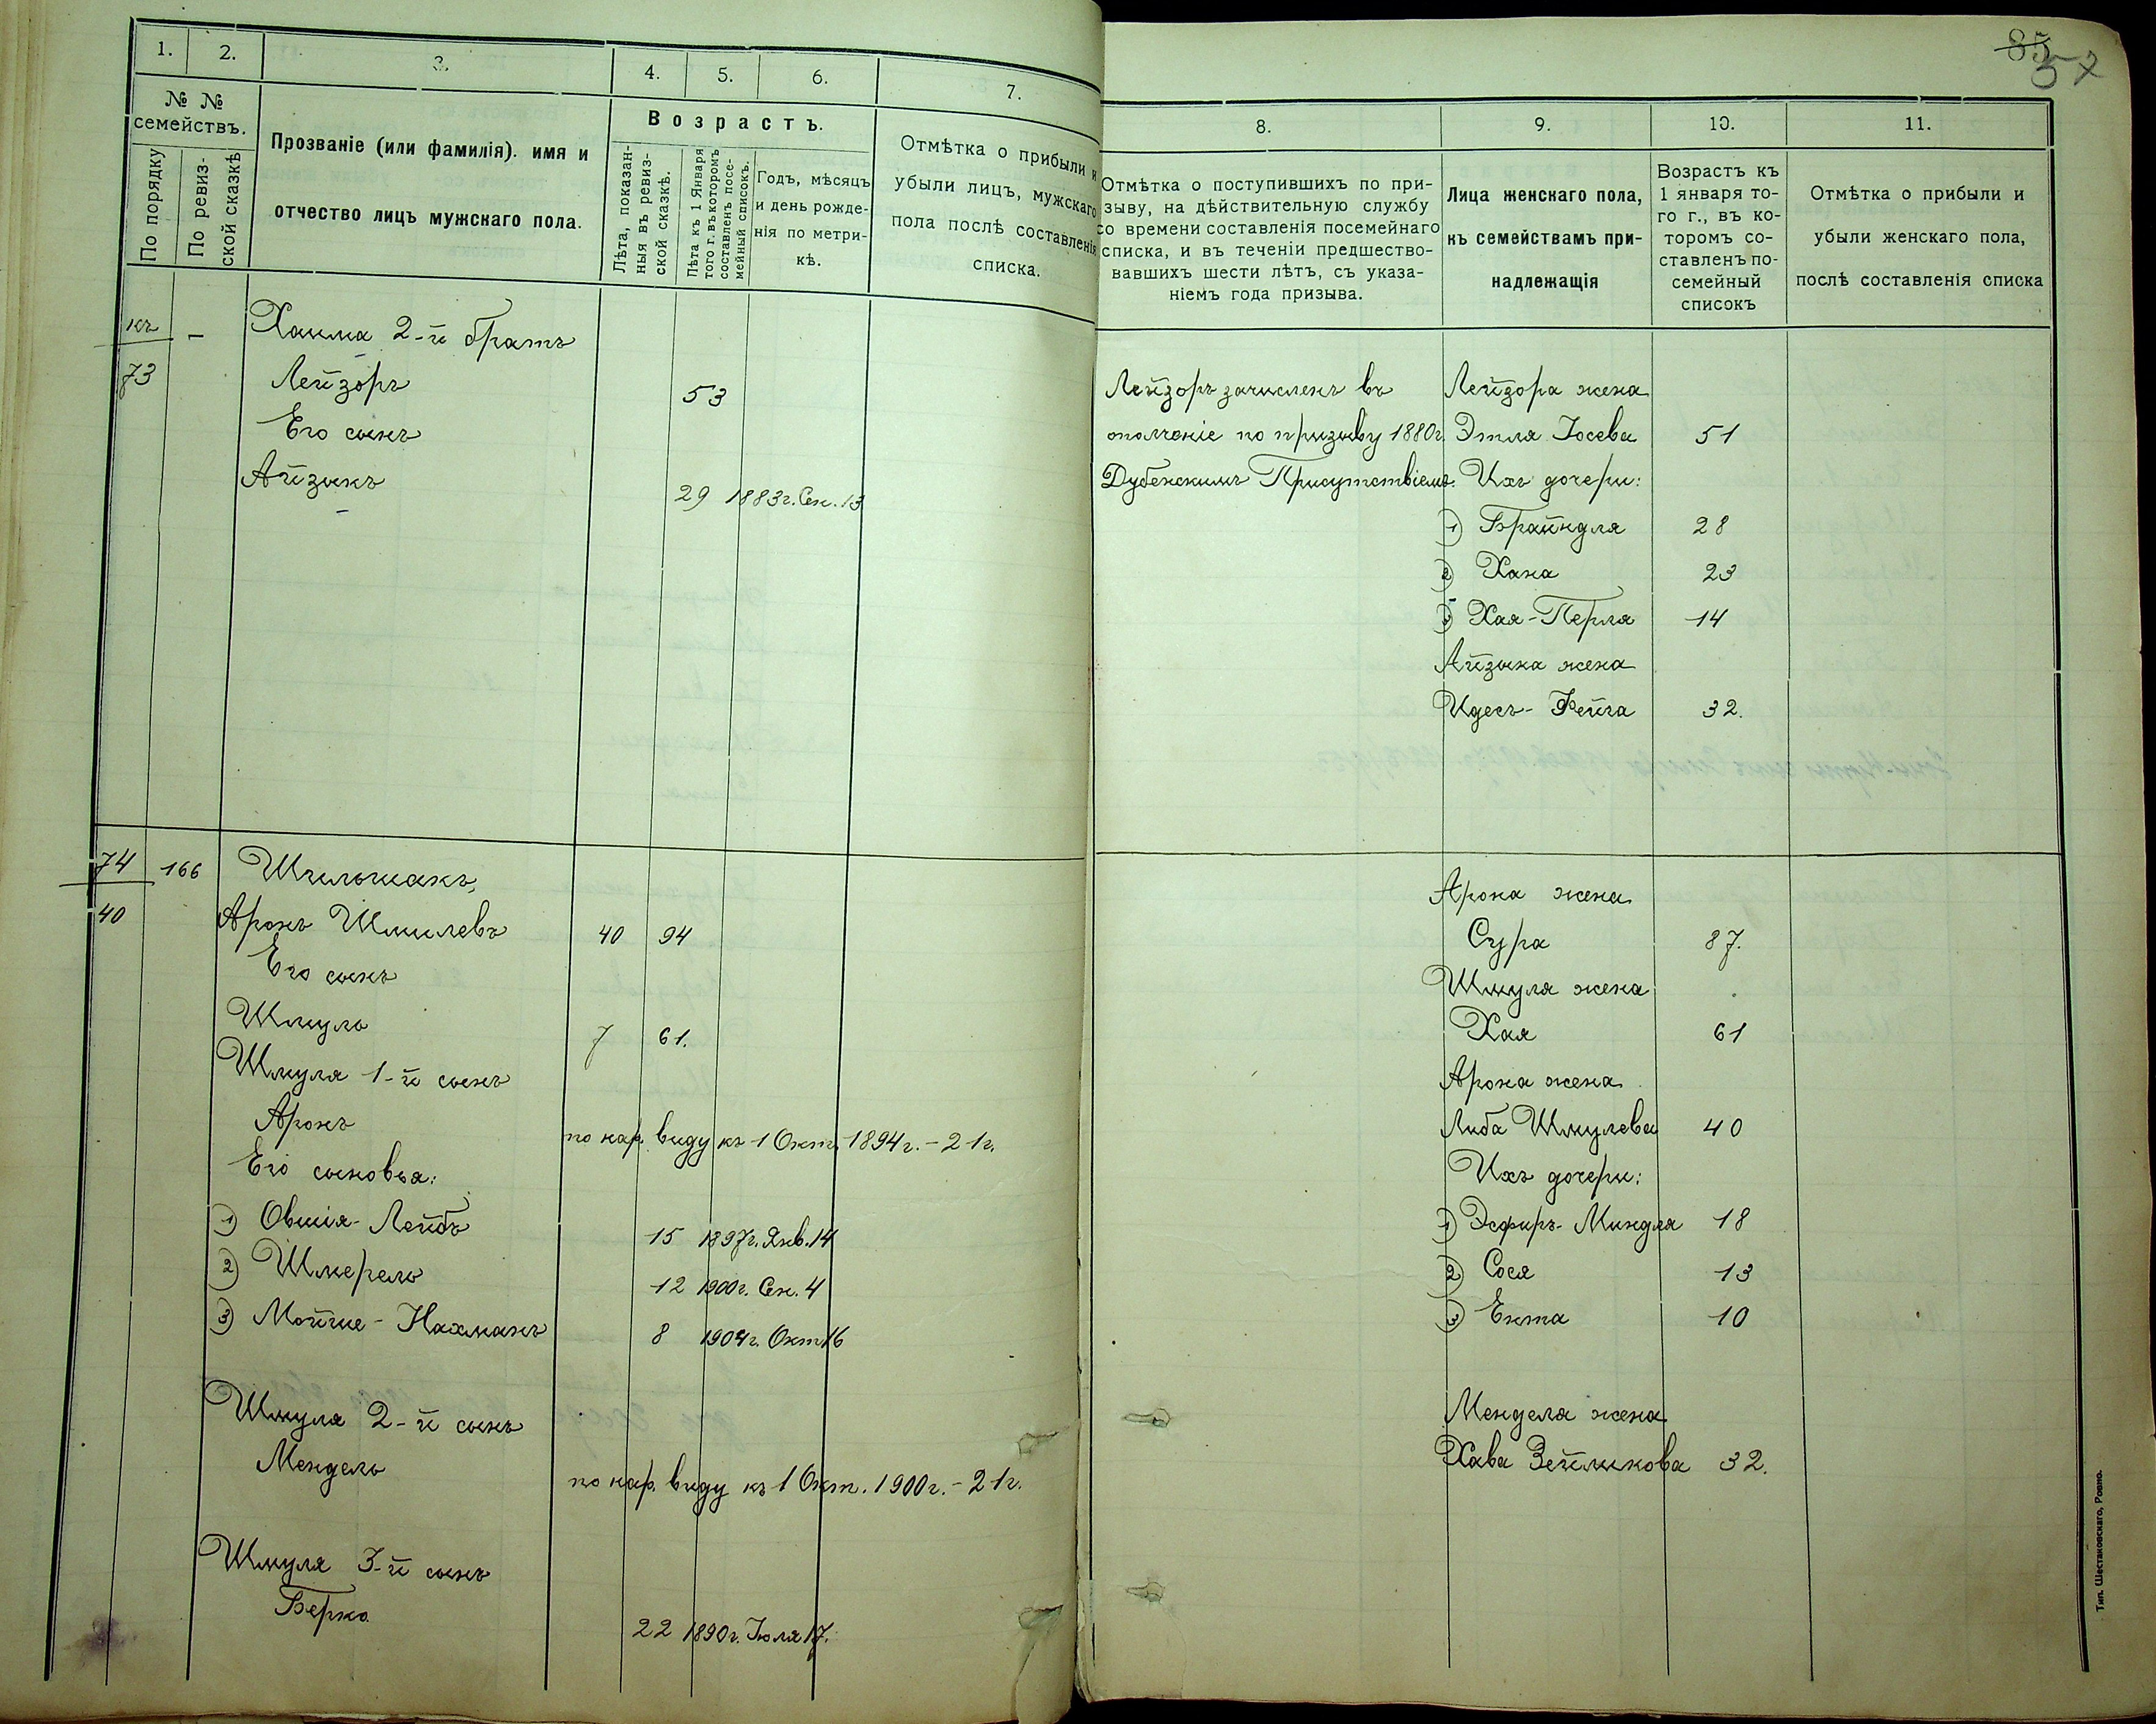 85
57
1. 2. 3. 4. 5. 6. 7.
№ № семействъ.
По порядку
По ревизской сказкѣ
Прозваніе (или фамилія). имя и
отчество лицъ мужскаго пола.
Возрастъ.
Лѣта, показан-
ныя въ ревиз-
ской сказкѣ.
Лѣта къ 1 Января
того г. въ которомъ
составленъ посе-
мейный списокъ.
Годъ, мѣсяцъ
и день рожде-
нія по метри-
кѣ.
Отмѣтка о прибыли и
убыли лицъ, мужскаго
пола послѣ составленія
списка.
къ 73 —
Хаима 2-й братъ
Лейзоръ 53
Его сынъ
Айзыкъ 29 1883г. Сен. 13
74 166 Шчильчакъ,
40 Аронъ Шмилевъ 40 94
Его сынъ
Шмуль 7 61.
Шмуля 1-й сынъ
Аронъ по нар. виду къ 1 Окт. 1894г. - 21г.
Его сыновья:
1) Овшія-Лейбъ 15 1897г. Янв. 14
2) Шмерель 12 1900г. Сен. 4
3) Мойше-Нахманъ 8 1904г. Окт 16
Шмуля 2-й сынъ
Мендель по нар. виду къ 1 Окт. 1900г. - 21г.
Шмуля 3-й сынъ
Берко 22 1890г. Іюля 17.
8. 9. 10. 11.
Отмѣтка о поступившихъ по при-
зыву, на дѣйствительную службу
со времени составленія посемейнаго
списка, и въ теченіи предшество-
вавшихъ шести лѣтъ, съ указа-
ніемъ года призыва.
Лица женскаго пола,
къ семействамъ при-
надлежащія
Возрастъ къ
1 января то-
го г., въ ко-
торомъ со-
ставленъ по-
семейный
списокъ
Отмѣтка о прибыли и
убыли женскаго пола,
послѣ составленія списка
Лейзоръ зачисленъ въ
ополченіе по призыву 1880г.
Дубенскимъ Присутствіемъ.
Лейзора жена
Этля Іосева 51
Ихъ дочери:
1) Брайндля 28
2) Хана 23
3) Хая-Перля 14
Айзыка жена
Идесъ-Фейга 32.
Арона жена
Сура 87.
Шмуля жена
Хая 61
Арона жена
Либа Шмулева 40
Ихъ дочери:
1) Эсфирь-Миндля 18
2) Сося 13
3) Ента 10
Менделя жена
Хава Зейликова 32.
Тип. Шестаковскаго, Ровно.